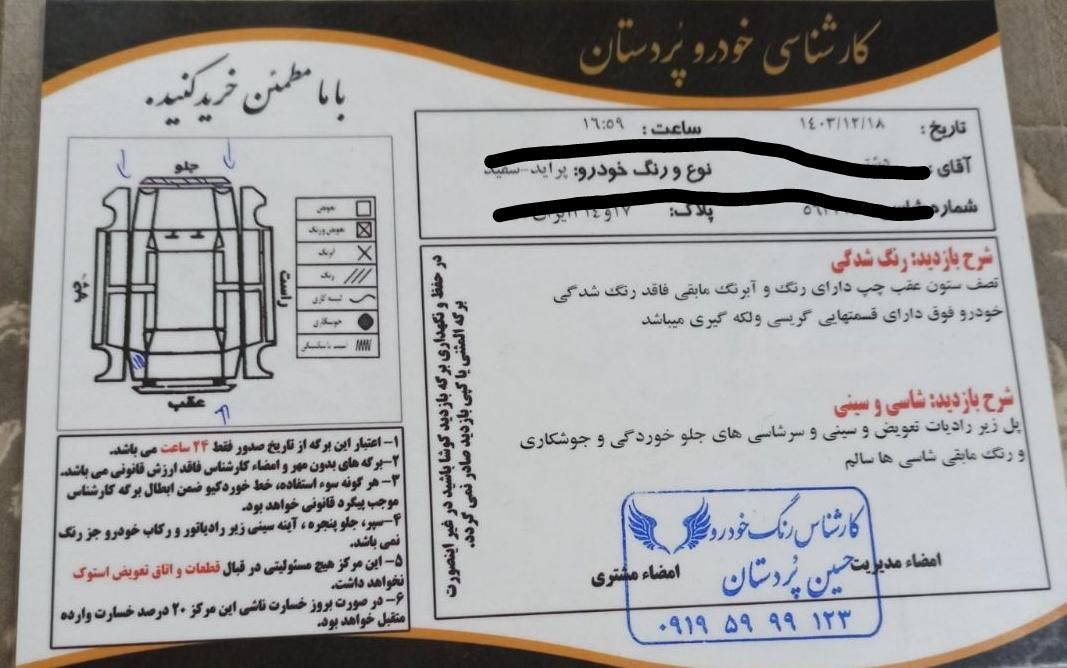 کارشناسی خودرو پُردستان
با ما مطمئن خرید کنید.
تاریخ: ۱۴۰۳/۱۲/۱۸ ساعت: ۱۶:۵۹
آقای نوع و رنگ خودرو: پراید-سفید
پلاک:
شرح بازدید: رنگ شدگی
نصف ستون عقب چپ دارای رنگ و آبرنگ مابقی فاقد رنگ شدگی
خودرو فوق دارای قسمتهایی گریسی ولکه گیری میباشد
شرح بازدید: شاسی و سینی
پل زیر رادیات تعویض و سینی و سرشاسی های جلو خوردگی و جوشکاری
و رنگ مابقی شاسی ها سالم
امضاء مدیریت
امضاء مشتری
کارشناس رنگ خودرو
حسین پُردستان
۰۹۱۹ ۵۹ ۹۹ ۱۲۳
در حفظ و نگهداری برگه بازدید کوشا باشید در غیر اینصورت
برگه المثنی یا کپی بازدید صادر نمی گردد.
جلو
راست
چپ
عقب
تعویض
تعویض ورنگ
آبرنگ
رنگ
لیسه گیری
جوشکاری
۱- اعتبار این برگه از تاریخ صدور فقط ۲۴ ساعت می باشد.
۲-برگه های بدون مهر و امضاء کارشناس فاقد ارزش قانونی می باشد.
۳- هر گونه سوء استفاده، خط خوردکیو ضمن ابطال برگه کارشناس
موجب پیگرد قانونی خواهد بود.
۴-سپر، جلو پنجره ، آینه سینی زیر رادیاتور و رکاب خودرو جز رنگ
نمی باشد.
۵- این مرکز هیچ مسئولیتی در قبال قطعات و اتاق تعویض استوک
نخواهد داشت.
۶- در صورت بروز خسارت ناشی این مرکز ۲۰ درصد خسارت وارده
متقبل خواهد بود.